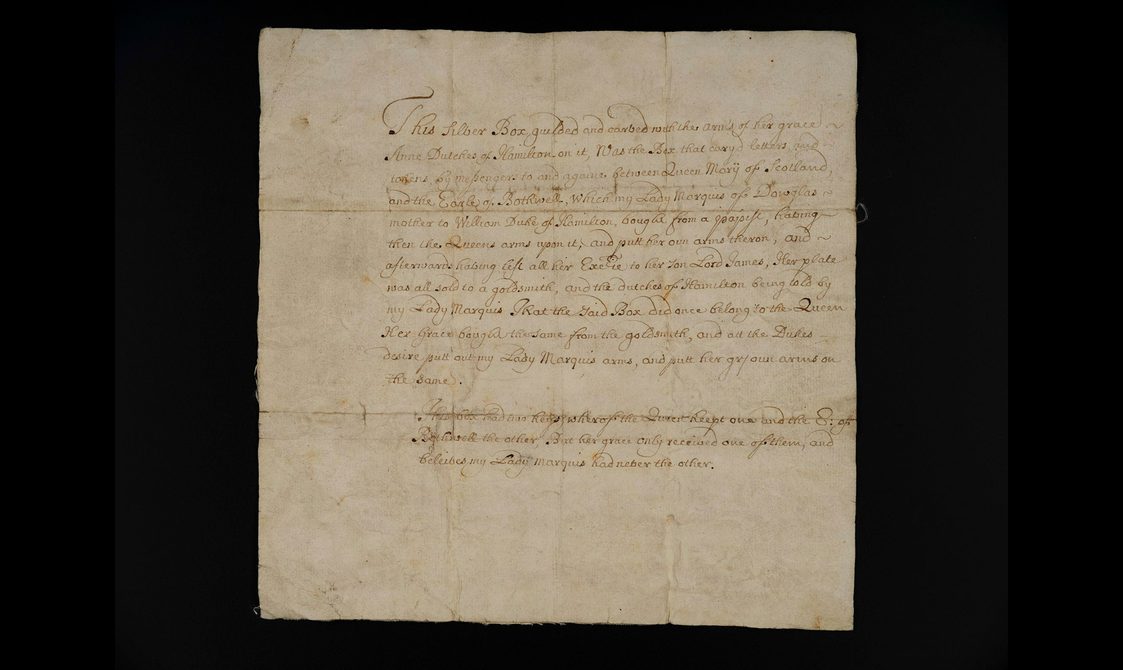 This Silver Box, guilded and carved with the arms of her grace
Anne Dutches of Hamilton on it, Was the Box that caryd letters, and
tokens by messengers to and againe between Queen Mary of Scotland,
and the Earle of Bothwell, Which my Lady Marquis of Dowglas
mother to William Duke of Hamilton, bought from a papist, having
then the Queens arms upon it, and putt her oun arms theron, and
afterwards having left all her to her son Lord James, Her plate
was all sold to a goldsmith, and the dutches of Hamilton being told by
my Lady Marquis That the said Box did once belong to the Queen
Her Grace bought the same from the goldsmith, and att the Dukes
desire putt out my Lady Marquis arms, and putt her oun arms on
the same.
This box had two keys, wherof the Queen keept one and the E: of
Bothwell the other But her grace only received one of them, and
beleives my Lady Marquis had never the other.